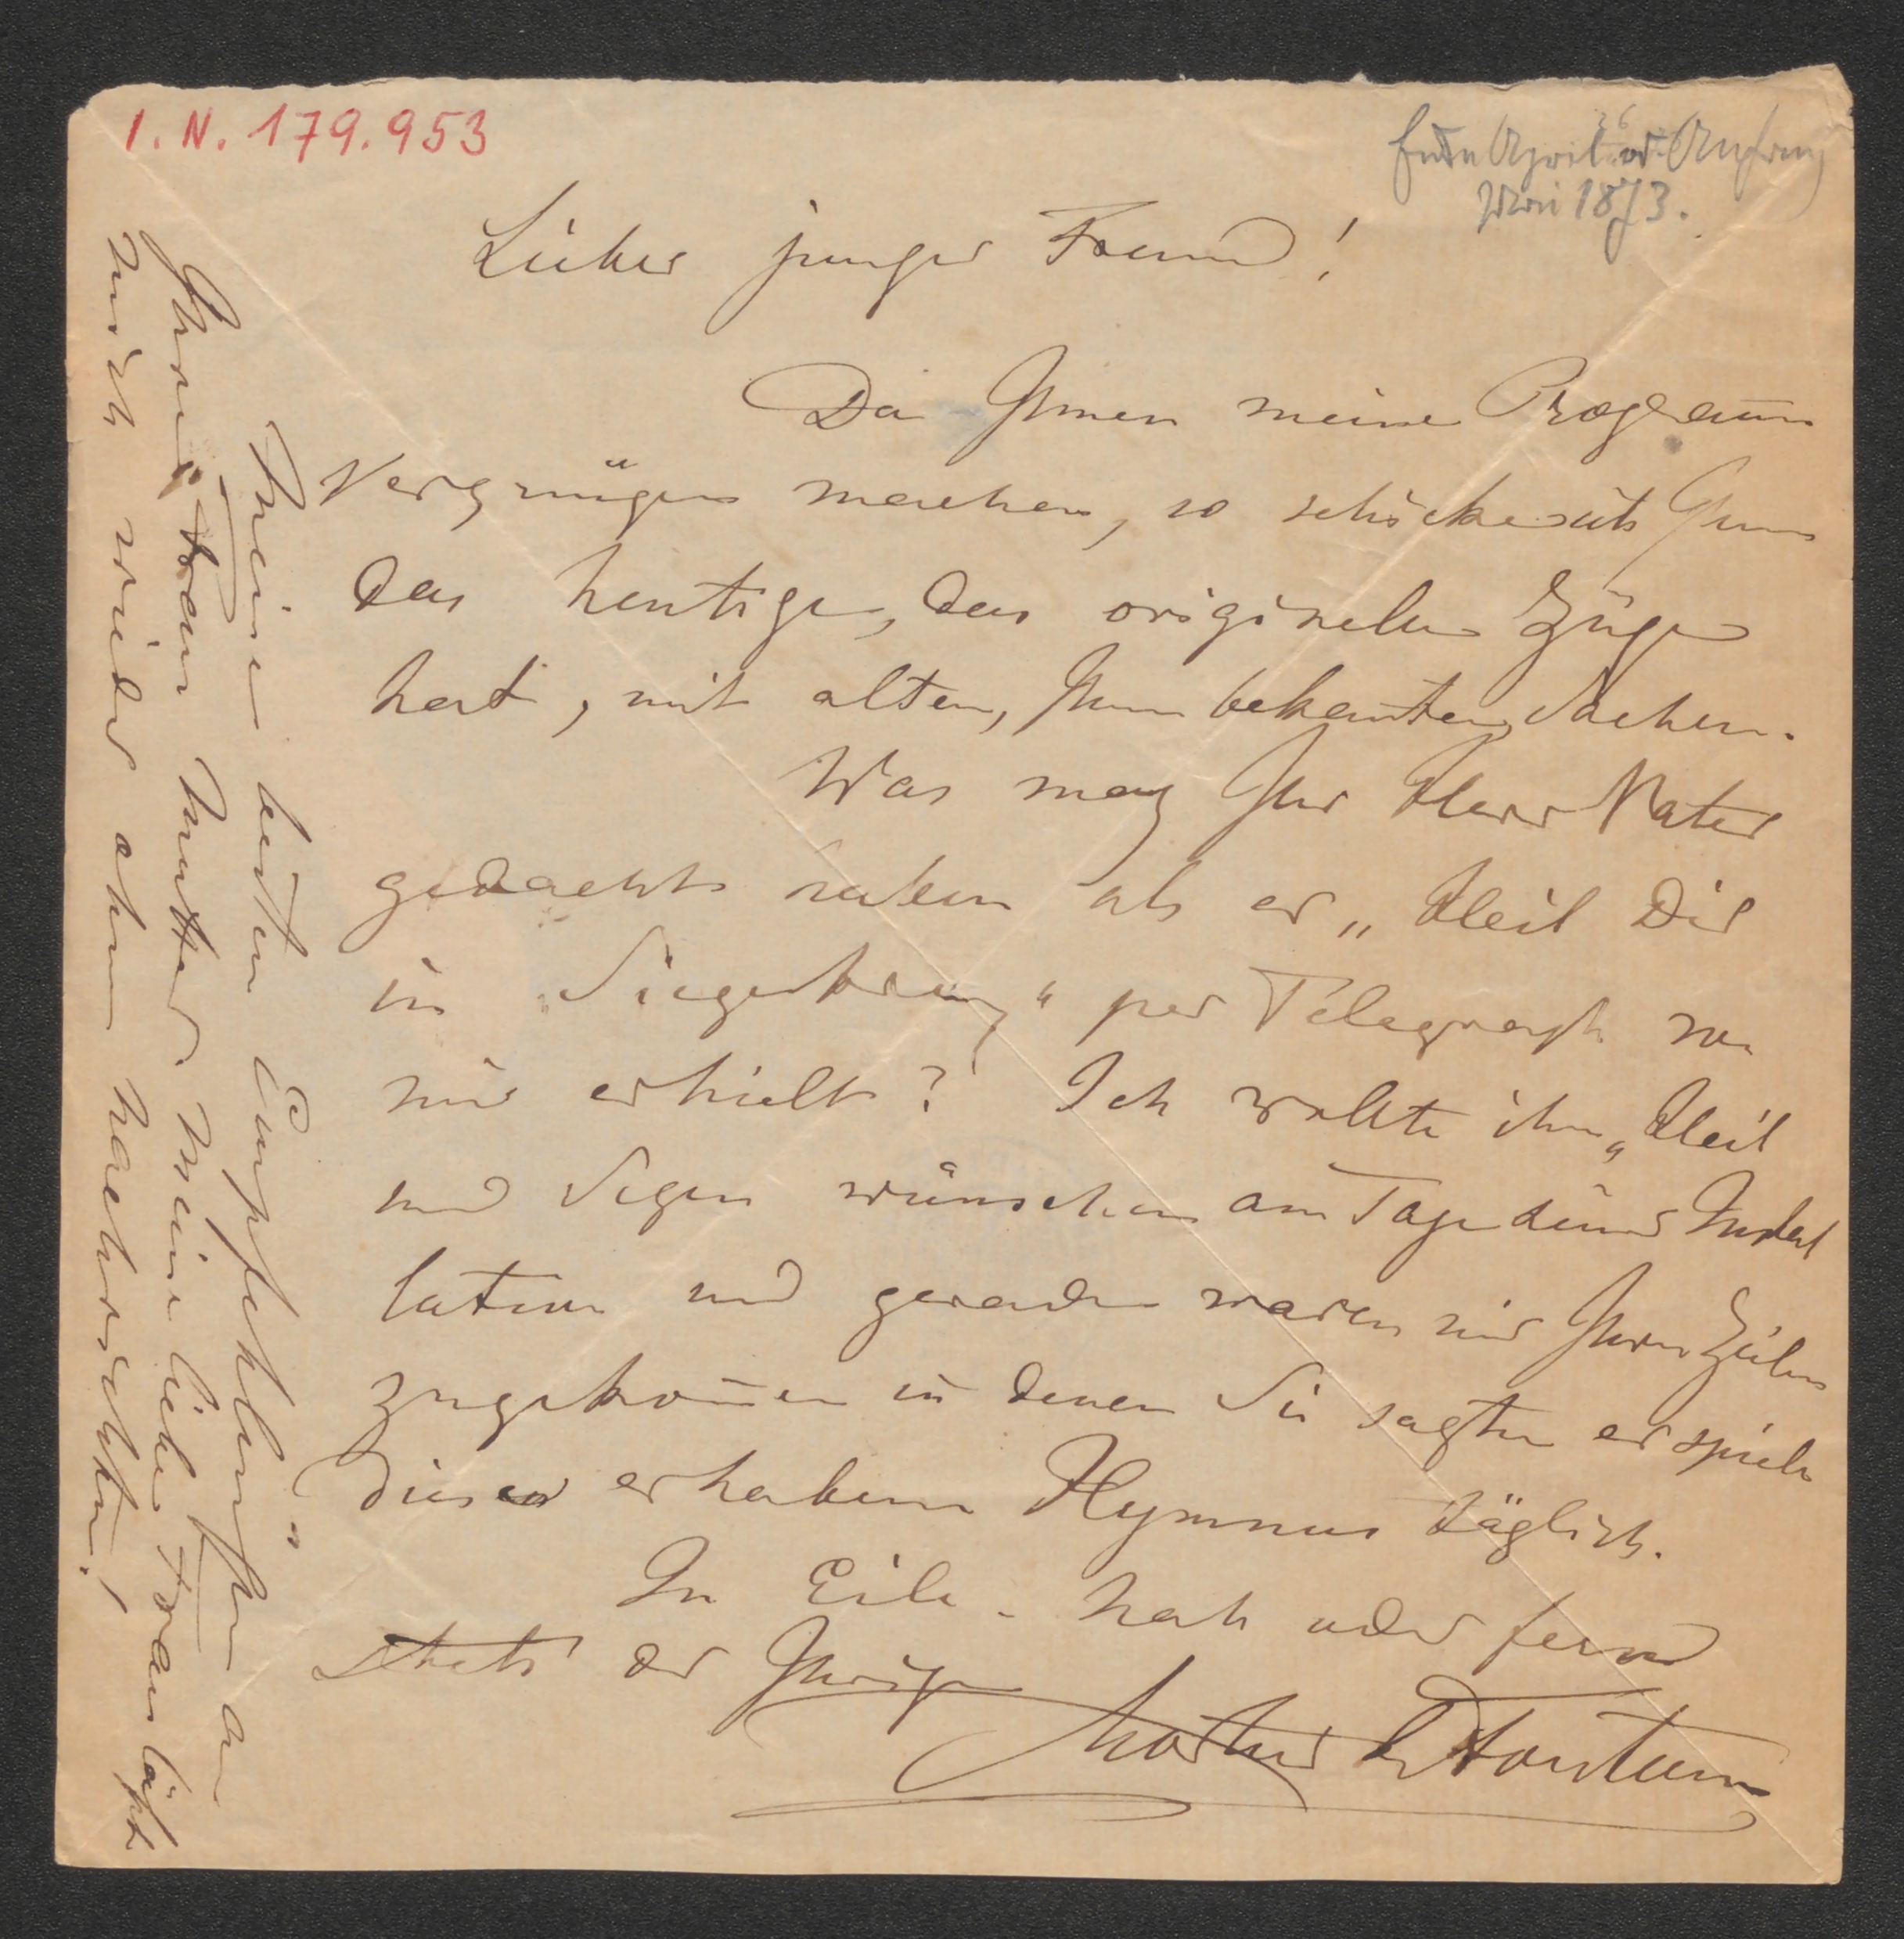 I. N. 179.953
Ende April od. Anfang
Mai 1873.
Lieber junger Freund!
Da Ihnen meine Program̄e
Vergnügen machen, so schicke ich Ihnen
das heutige, das originelle Züge
hat, mit alten, Ihnen bekan̄ten Sachen.
Was mag Ihr Herr Vater
gedacht haben als er „Heil Dir
im Siegerkranz" per Telegraph von
mir erhielt? Ich wollte ihm „Heil
und Segen wünschen am Tage seiner Instal
lation und gerade waren mir Ihre Zeilen
zugekom̄en in denen Sie sagten er spiele
diesen erhabenen Hymnus täglich.
In Eile. Nah oder fern
stets der Ihrige
Meine besten Empfehlungen an
Ihre Frau Mutter. Meine liebe Frau läßt
mich wieder ohne Nachrichten!